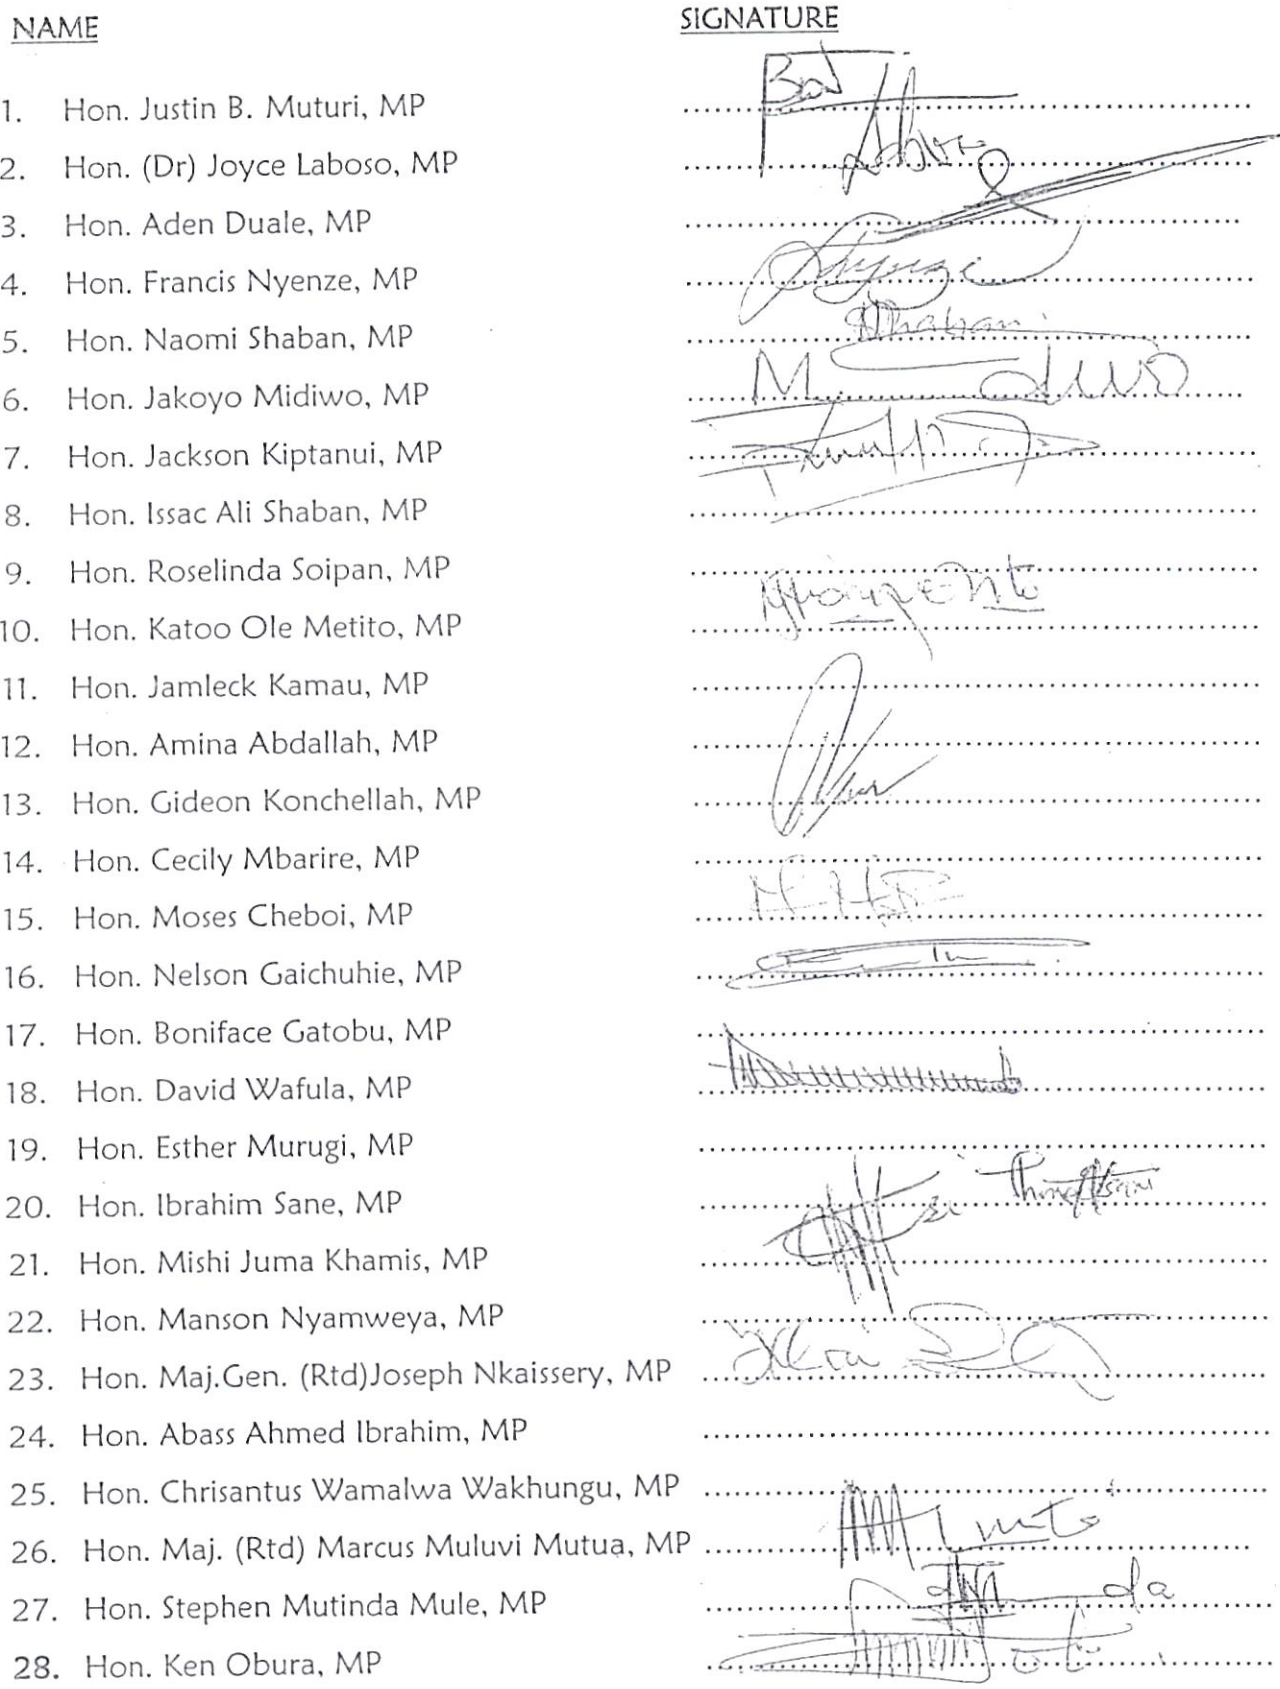 NAME SIGNATURE
1. Hon. Justin B. Muturi, MP
2. Hon. (Dr) Joyce Laboso, MP
3. Hon. Aden Duale, MP
4. Hon. Francis Nyenze, MP
5. Hon. Naomi Shaban, MP
6. Hon. Jakoyo Midiwo, MP
7. Hon. Jackson Kiptanui, MP
8. Hon. Issac Ali Shaban, MP
9. Hon. Roselinda Soipan, MP
10. Hon. Katoo Ole Metito, MP
11. Hon. Jamleck Kamau, MP
12. Hon. Amina Abdallah, MP
13. Hon. Gideon Konchellah, MP
14. Hon. Cecily Mbarire, MP
15. Hon. Moses Cheboi, MP
16. Hon. Nelson Gaichuhie, MP
17. Hon. Boniface Gatobu, MP
18. Hon. David Wafula, MP
19. Hon. Esther Murugi, MP
20. Hon. Ibrahim Sane, MP
21. Hon. Mishi Juma Khamis, MP
22. Hon. Manson Nyamweya, MP
23. Hon. Maj.Gen. (Rtd)Joseph Nkaissery, MP
24. Hon. Abass Ahmed Ibrahim, MP
25. Hon. Chrisantus Wamalwa Wakhungu, MP
26. Hon. Maj. (Rtd) Marcus Muluvi Mutua, MP
27. Hon. Stephen Mutinda Mule, MP
28. Hon. Ken Obura, MP